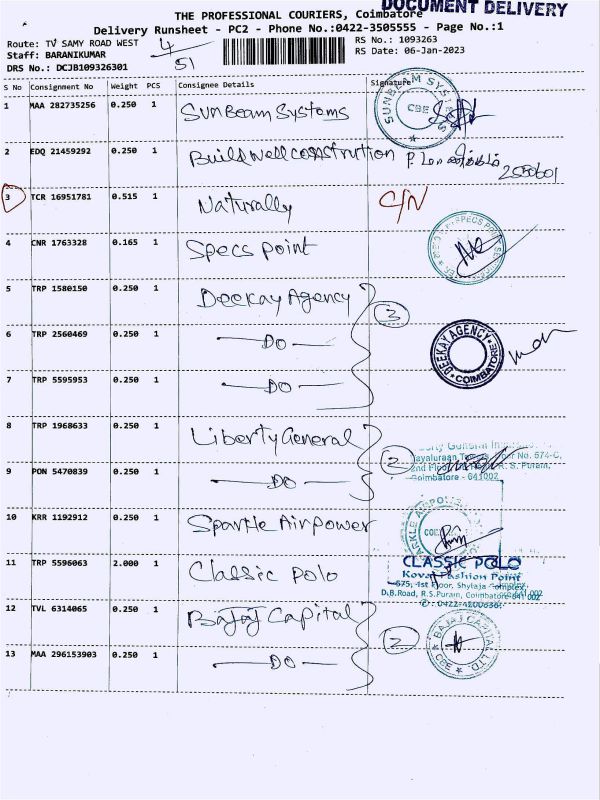 DOCUMENT DELIVERY
THE PROFESSIONAL COURIERS, Coimbatore
Delivery Runsheet - PC2 - Phone No.:0422-3505555 - Page No.:1
Route: TV SAMY ROAD WEST
Staff: BARANIKUMAR
DRS No.: DCJB109326301
4
51
RS No.: 1093263
RS Date: 06-Jan-2023
S No Consignment No Weight PCS Consignee Details Signature
1 MAA 282735256 0.250 1 SunBeam Systems
SUNBEAM SYS CBE
2 EDQ 21459292 0.250 1 Buildwell constrution
3 TCR 16951781 0.515 1 Naturally C/N
4 CNR 1763328 0.165 1 Specs point
SPECS POI
5 TRP 1580150 0.250 1 Deekay Agency
3
6 TRP 2560469 0.250 1 DO
DEEKAY AGENCY COIMBATORE
7 TRP 5595953 0.250 1 DO
8 TRP 1968633 0.250 1 Liberty General
2
9 PON 5470839 0.250 1 DO
R. S. Puram,
Coimbatore - 641002
10 KRR 1192912 0.250 1 Sparkle Airpower
ARKLE AIRPO
11 TRP 5596063 2.000 1 Classic Polo
CLASSIC POLO
Kovai Fashion Point
575, 1st Floor, Shylaja Complex,
D.B.Road, R.S.Puram, Coimbatore
12 TVL 6314065 0.250 1 Bajaj Capital
2
BAJAJ CAPITAL LTD CBE
13 MAA 296153903 0.250 1 DO